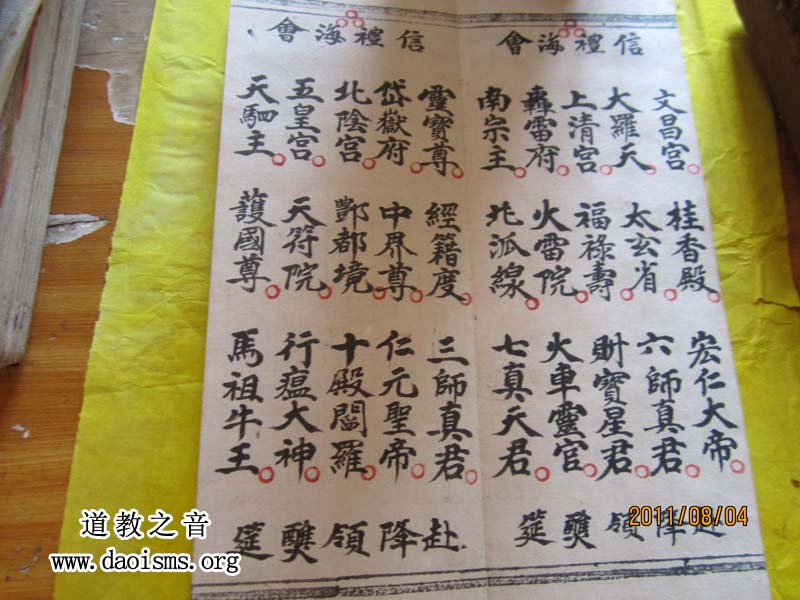 信禮海會
文昌宮 桂香殿 宏仁大帝
大羅天 太玄省 六師真君
上清宮 福祿壽 財寶星君
轟雷府 火雷院 火車靈官
南宗主 北泒線 七真天君
赴降領醮筵
信禮海會
靈寶尊 經籍度 三師真君
岱嶽府 中界尊 仁元聖帝
北陰宮 酆都境 十殿閻羅
五皇宮 天符院 行瘟大神
天駟主 護國尊 馬祖牛王
赴降領醮筵
道教之音
www.daoisms.org
2011/08/04